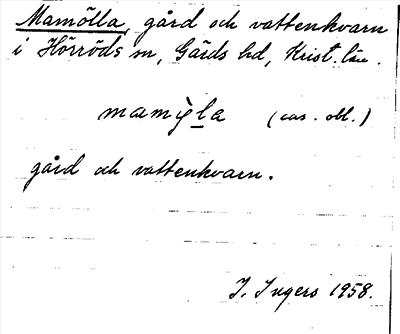 Mamölla, gård och vattenkvarn
i Hörröds sn, Gärds hd, Krist. län.
mamỳla (cas. obl.)
gård och vattenkvarn.
I. Ingers 1958.